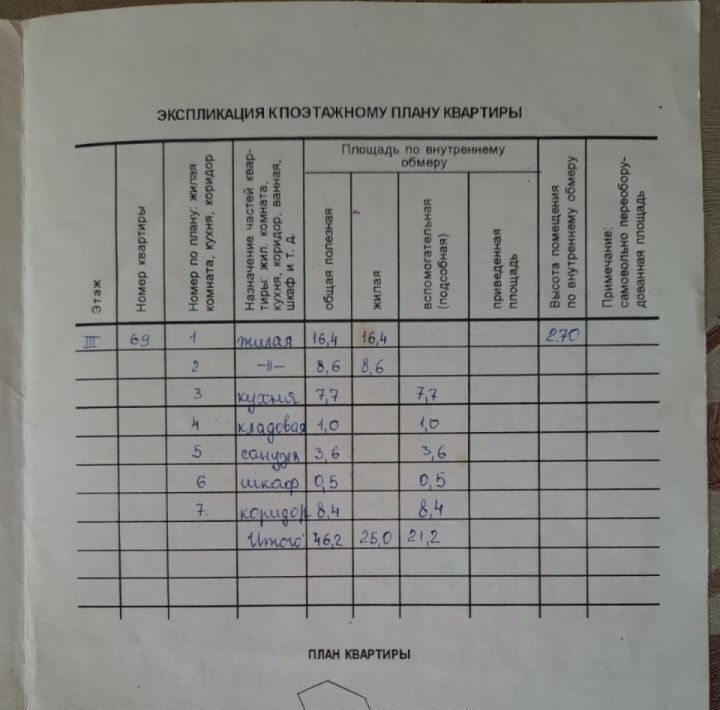 ЭКСПЛИКАЦИЯ К ПОЭТАЖНОМУ ПЛАНУ КВАРТИРЫ
Этаж
Номер квартиры
Номер по плану: жилая
комната, кухня, коридор
Назначение частей квар-
тиры: жил. комната,
кухня, коридор, ванная,
шкаф и т. д.
Площадь по внутреннему
обмеру
общая полезная
жилая
вспомогательная
(подсобная)
приведенная
площадь
Высота помещения
по внутреннему обмеру
Примечание:
самовольно переобору-
дованная площадь
III 69 1 жилая 16,4 16,4 2.70
2 –II– 8,6 8,6
3 кухня 7,7 7,7
4 кладовая 1,0 1,0
5 санузел 3,6 3,6
6 шкаф 0,5 0,5
7. коридор 8,4 8,4
Итого: 46,2 25,0 21,2
ПЛАН КВАРТИРЫ